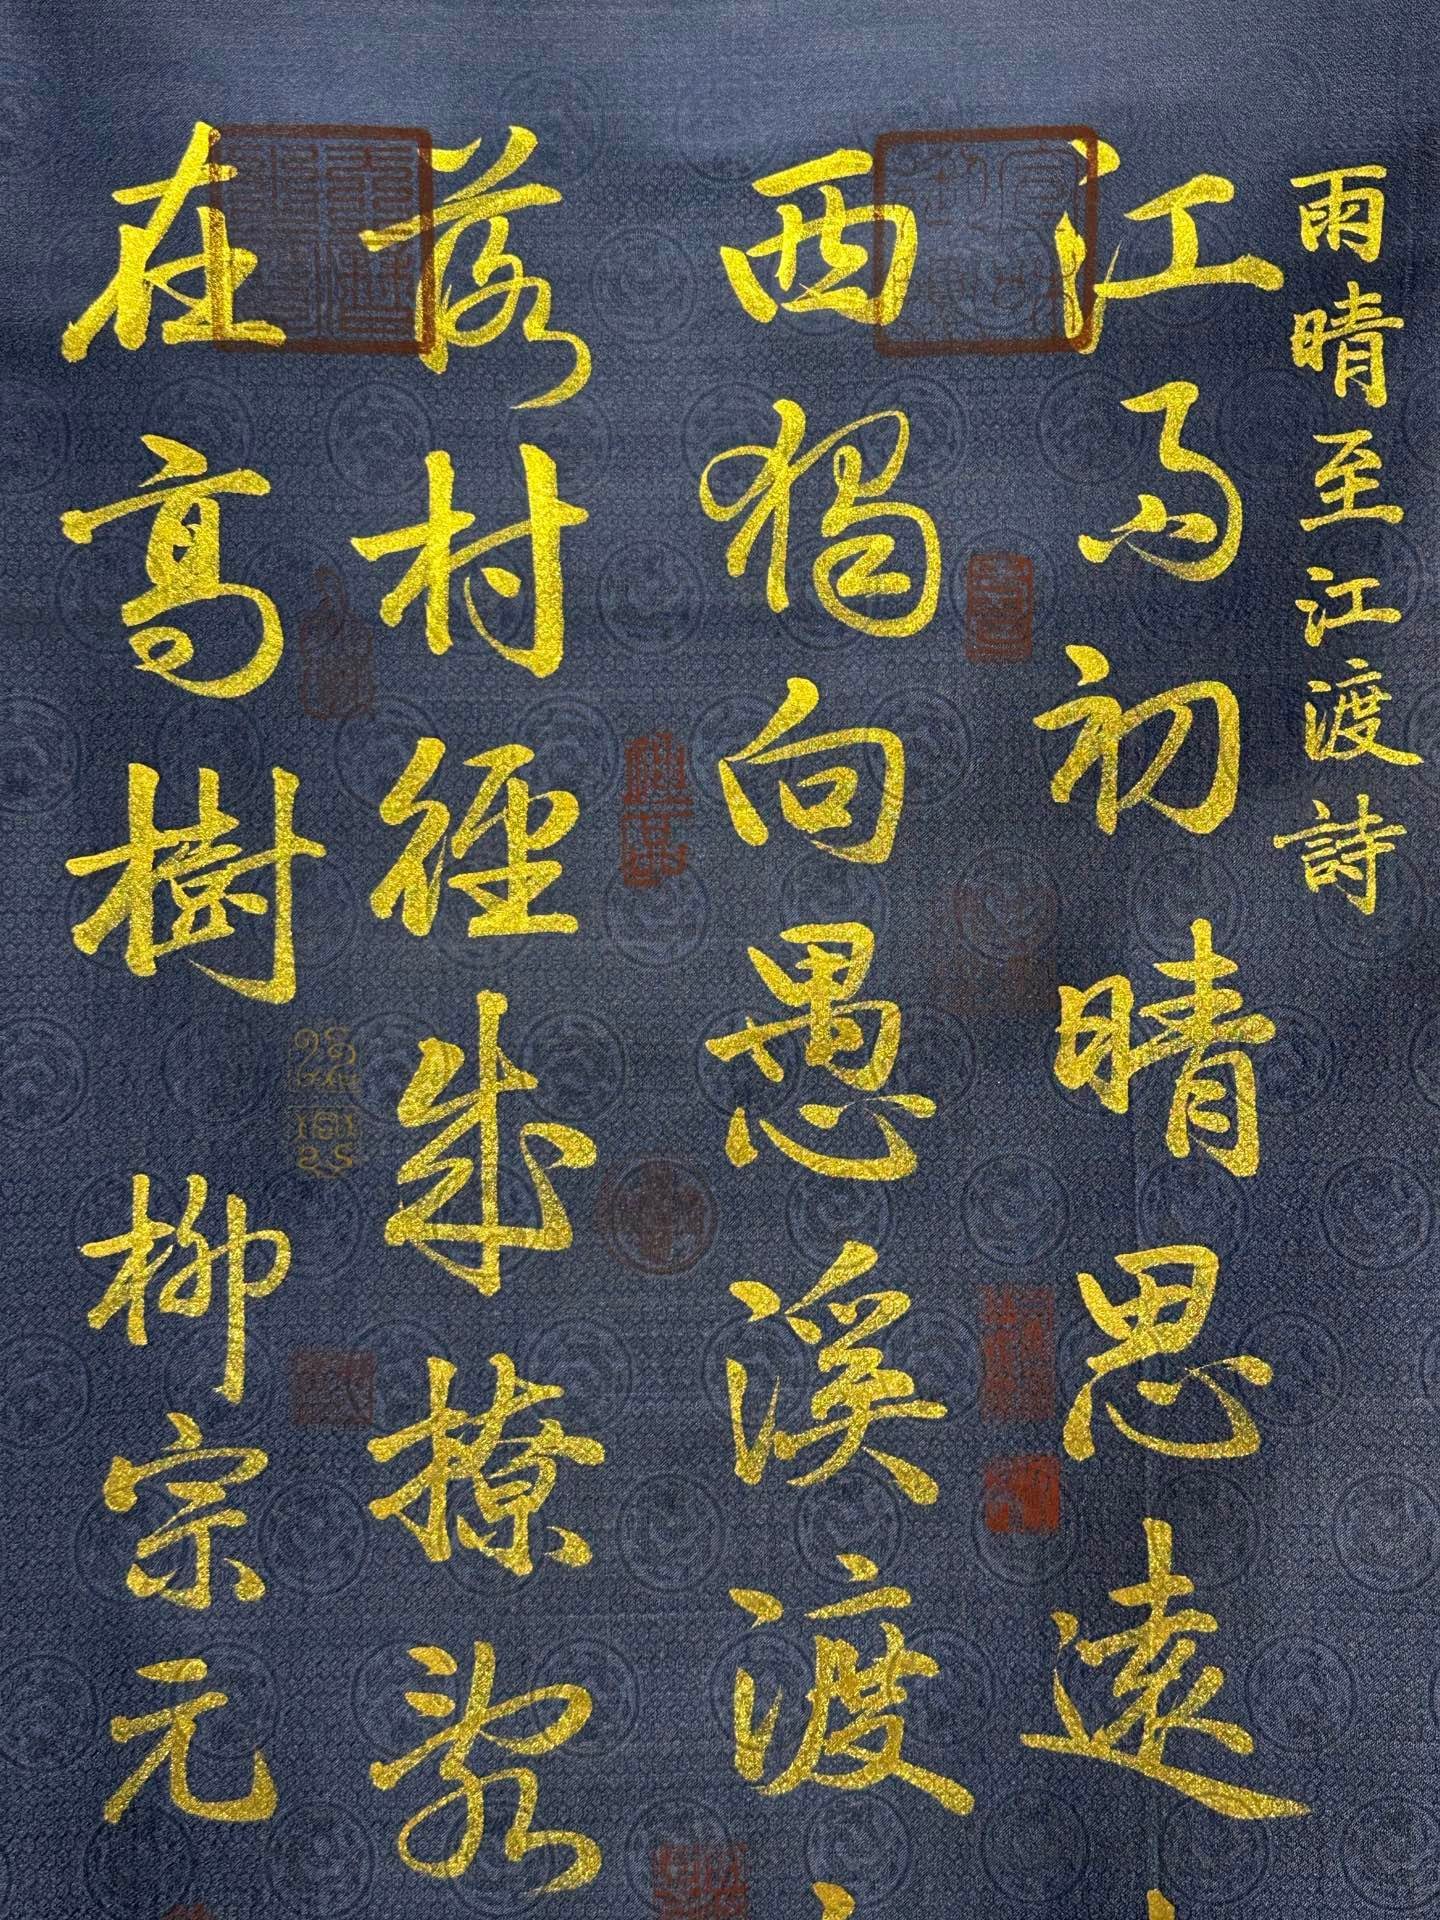 雨晴至江渡詩
江雨初晴思遠
西獨向愚溪渡
落村徑成撩亂
在高樹 柳宗元